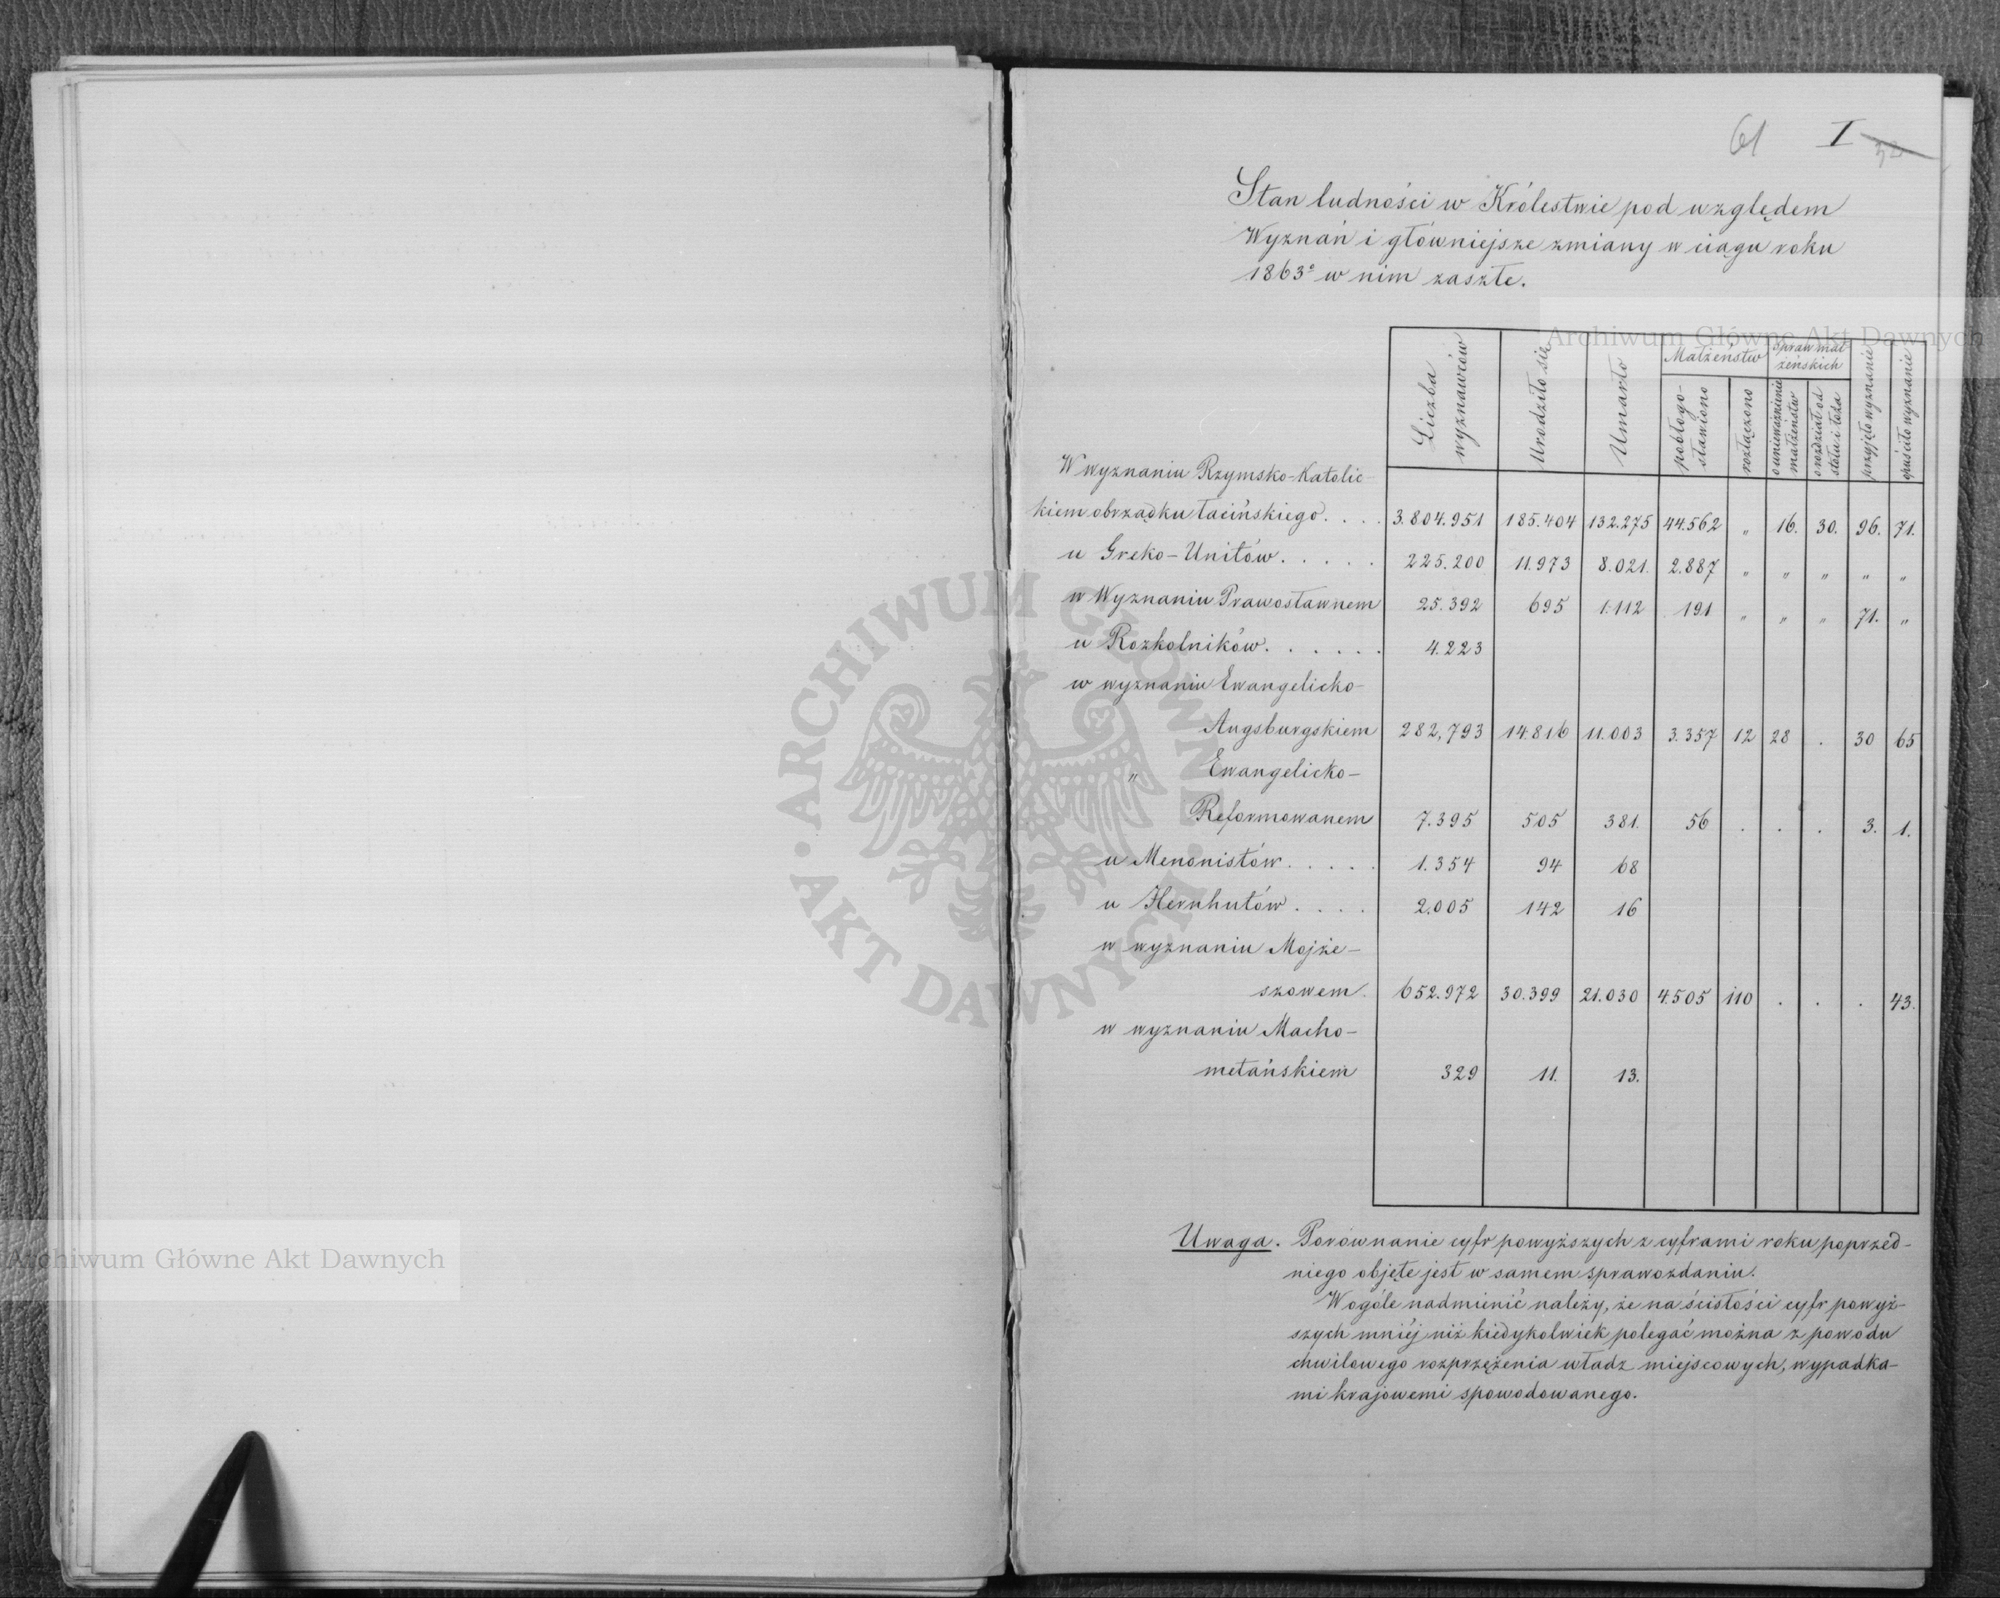 61 I 32
Stan ludności w Królestwie pod względem
Wyznań i główniejsze zmiany w ciągu roku
1863º w nim zaszłe.
Archiwum Główne Akt Dawnych
Liczba wyznawców | Urodziło się | Umarło | Małżeństw | Spraw małżeńskich | przyjęło wyznanie | opuściło wyznanie
pobłogosławiono | rozłączono | o unieważnienie małżeństw | o rozdział od stołu i łoża
W wyznaniu Rzymsko-Katolic-
kiem obrządku łacińskiego. . . . 3.804.951 185.404 132.275 44.562 „ 16. 30. 96. 71.
u Greko-Unitów. . . . . 225.200 11.973 8.021. 2.887 „ „ „ „ „
w Wyznaniu Prawosławnem 25.392 695 1.112 191 „ „ „ 71. „
u Rozkolników. . . . . . 4.223
w wyznaniu Ewangelicko-
Augsburgskiem 282,793 14.816 11.003 3.357 12 28 . 30 65
„ Ewangelicko-
Reformowanem 7.395 505 381. 56 . . . 3. 1.
u Menonistów. . . . . 1.354 94 68
u Hernhutów. . . . 2.005 142 16
w wyznaniu Mojże-
szowem. 652.972 30.399 21.030 4.505 110 . . . 43.
w wyznaniu Macho-
metańskiem 329 11. 13.
Uwaga. Porównanie cyfr powyższych z cyframi roku poprzed-
niego objęte jest w samem sprawozdaniu.
W ogóle nadmienić należy, że na ścisłości cyfr powyż-
szych mniéj niż kiedykolwiek polegać można z powodu
chwilowego rozprzężenia władz miejscowych, wypadka-
mi krajowemi spowodowanego.
ARCHIWUM GŁÓWNE · AKT DAWNYCH ·
Archiwum Główne Akt Dawnych